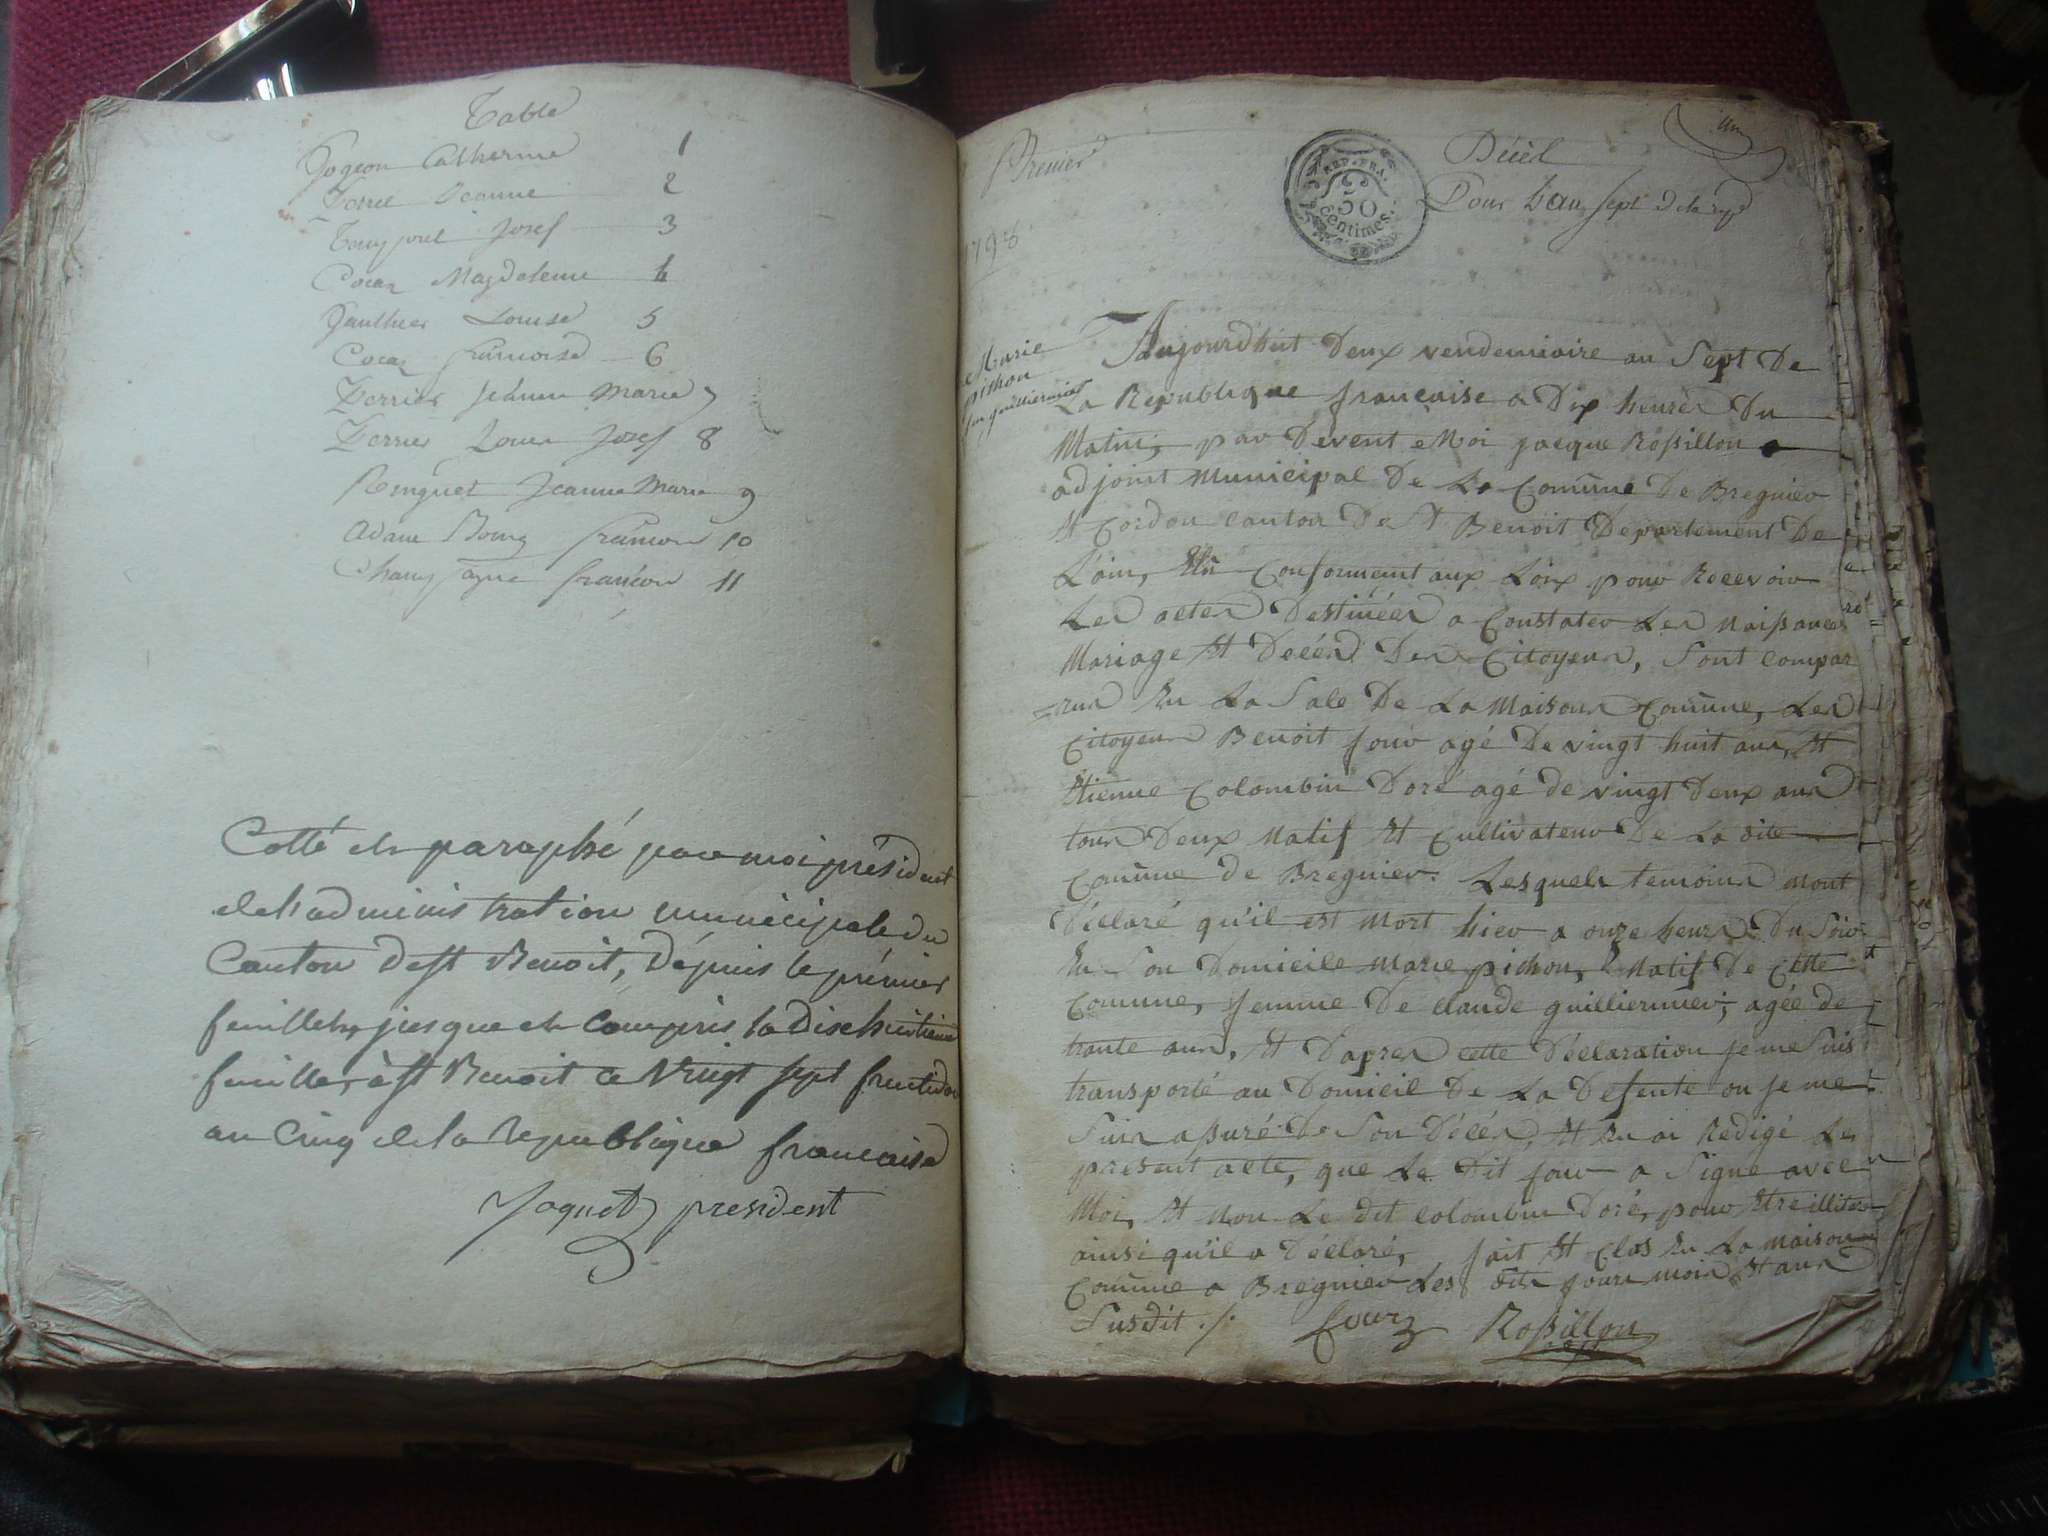 Table
Catherine 1
Jeanne 2
Josef 3
Cocaz Magdeleine 4
Gauthier Louise 5
Cocaz françoise 6
ferrier Jeanne Marie 7
ferrier Louis Josef 8
Ringuet Jeanne Marie 9
Adam françois 10
Champagne françois 11
Cotté et paraphé par moi président
de l'administration municipale du
Canton de st Benoit, Dépuis le prémier
feuillet, jusque et Compris le Dixhuitieme
feuillet, à st Benoit ce Vingt sept fructidor
an Cinq de la republique francaise
Jaquet president
Premier
un
Décès
REP. FRA.
50
centimes.
Pour L'an sept de la rep
1798
Marie
pichon
fe guilliermier
Aujourd'huit Deux vendemiaire an Sept De
La Republique francaise a Dix heures Du
Matin, par Devent Moi jacque Rossillon
adjoint Municipal De La Comune De Bregnier
Et Cordon canton De St Benoit Departement De
L'ain, Elû Conforment aux Loix pour Recevoir
Les actes Destinées a Constater Les Naissances
Mariage Et Décés Des Citoyens, Sont compar
=rus En La Sale De La Maison Comune, Les
Citoyens Benoit four agé De vingt huit ans, Et
Etienne Colombin Doré agé de vingt Deux ans
tous Deux Natif Et Cultivateur De La dite
Comune de Bregnier. Lesquels temoins mont
Déclaré qu'il est Mort hier a onze heurs Du Soir
En Son Domicile Marie pichon, Natif De Cette
Comune, femme De claude guilliermier, agée de
trante ans, Et Dapres cette Déclaration je me Suis
transporté au Domicil De La Defente ou je me
Suis assuré De Son Décés, Et En ai Redigé Le
present acte, que Le Dit four a Signe avec
Moi, Et Non Le dit colombin Doré, pour Etre illiteré
ainsi qu'il a Déclaré, fait Et Clos En La Maison
Comune a Bregnier Les dits jours mois Et ans
Susdit ./. fourz Rossillon